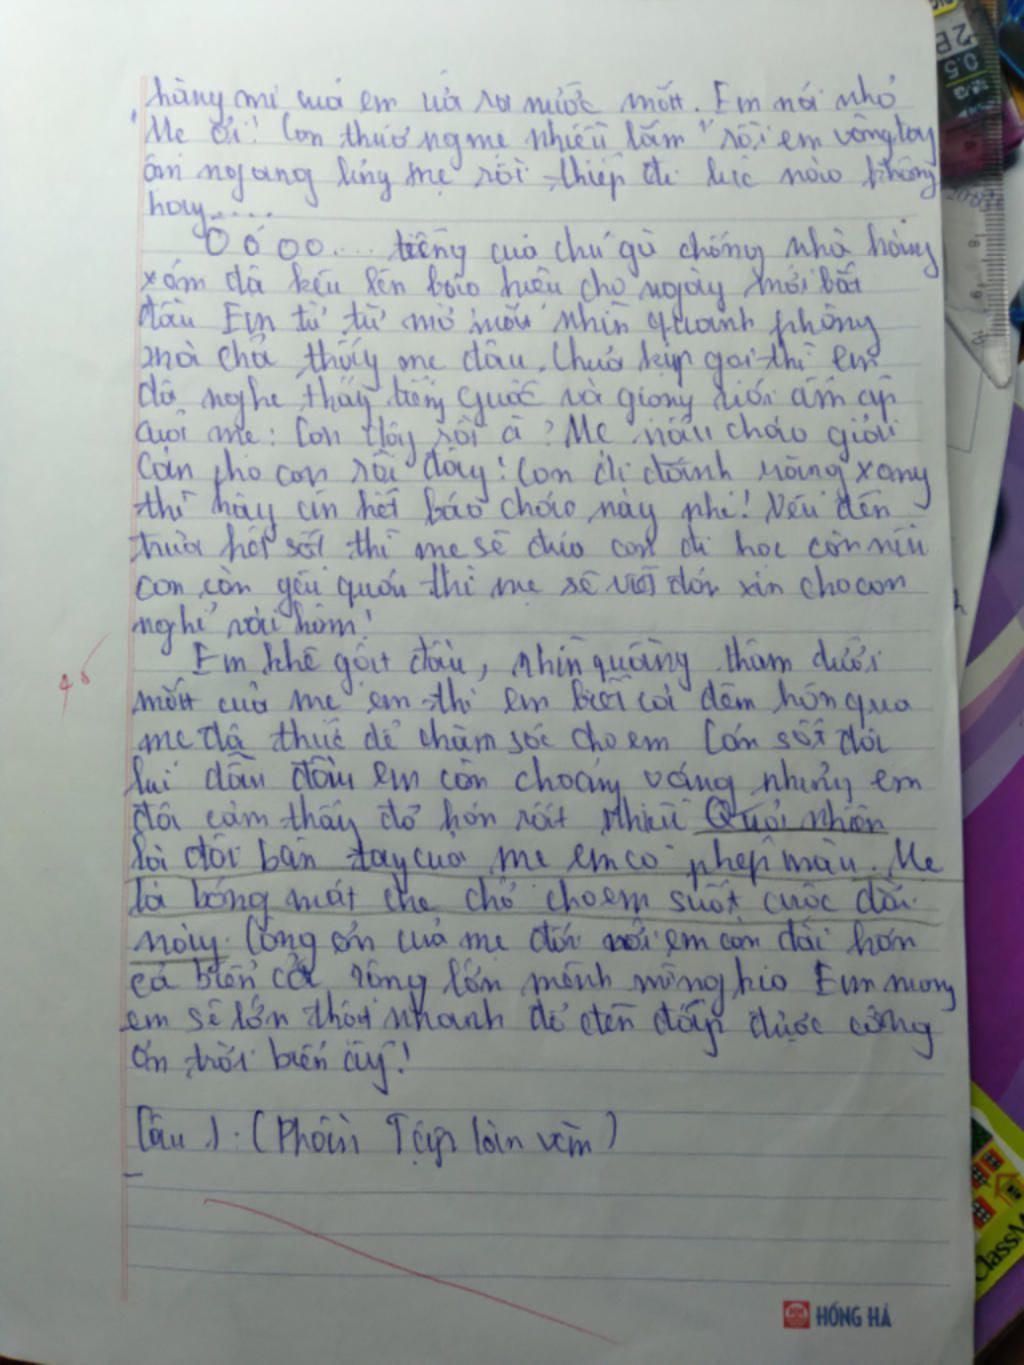 hàng mi của em ứa ra nước mắt. Em nói nhỏ
"Mẹ ơi! Con thương mẹ nhiều lắm" rồi em vòng tay
ôm ngang lưng mẹ rồi thiếp đi lúc nào không
hay.....
Ò ó o o.... tiếng của chú gà chống nhà hàng
xóm đã kêu lên báo hiệu cho ngày mới bắt
đầu Em từ từ mở mắt nhìn quanh phòng
mà chả thấy mẹ đâu. Chưa kịp gọi thì em
đã nghe thấy tiếng guốc và giọng nói ấm áp
của mẹ: Con dậy rồi à? Mẹ nấu cháo giải
cản cho con rồi đây! Con đi đánh răng xong
thì hãy ăn hết bát cháo này nhé! Nếu đến
trưa hết sốt thì mẹ sẽ đưa con đi học còn nếu
con còn yếu quá thì mẹ sẽ viết đơn xin cho con
nghỉ vài hôm!
Em khẽ gật đầu, nhìn quầng thâm dưới
mắt của mẹ em thì em biết cả đêm hôm qua
mẹ đã thức để chăm sóc cho em Cơn sốt đã
lui dần đầu em còn choáng váng nhưng em
đã cảm thấy đỡ hơn rất nhiều Quả nhiên
là đôi bàn tay của mẹ em có phép màu. Mẹ
là bóng mát che chở cho em suốt cuộc đời
này. Công ơn của mẹ đối với em còn dài hơn
cả biển cả rộng lớn mênh mông kia Em mong
em sẽ lớn thật nhanh để đền đáp được công
ơn trời biển ấy!
Câu 1: (Phần Tập làn văn)
HỒNG HÀ
2B
0.5
ClassM